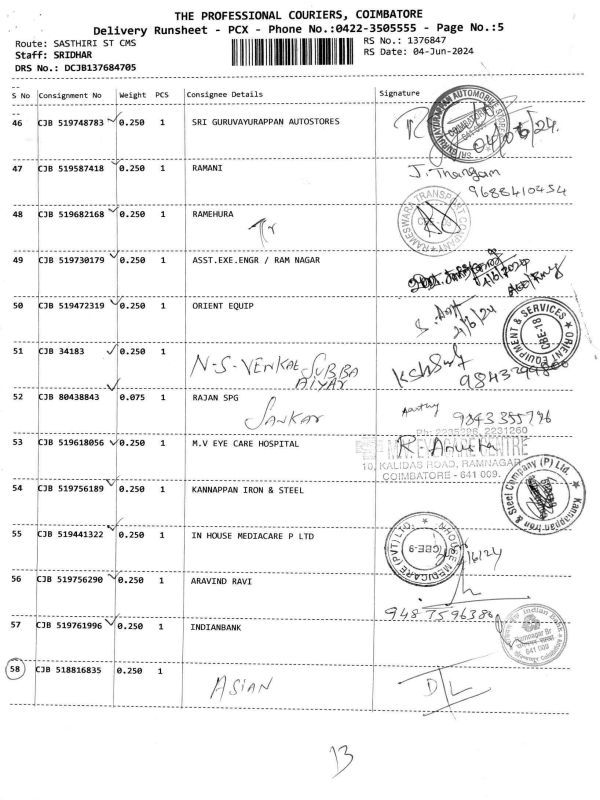 THE PROFESSIONAL COURIERS, COIMBATORE
Delivery Runsheet - PCX - Phone No.:0422-3505555 - Page No.:5
Route: SASTHIRI ST CMS RS No.: 1376847
Staff: SRIDHAR RS Date: 04-Jun-2024
DRS No.: DCJB137684705
S No Consignment No Weight PCS Consignee Details Signature
46 CJB 519748783 0.250 1 SRI GURUVAYURAPPAN AUTOSTORES
04/06/24.
47 CJB 519587418 0.250 1 RAMANI J. Thangam
9688410454
48 CJB 519682168 0.250 1 RAMEHURA
RAMESWARA TRANSPORT COMPANY
49 CJB 519730179 0.250 1 ASST.EXE.ENGR / RAM NAGAR
50 CJB 519472319 0.250 1 ORIENT EQUIP
4/6/24
ORIENT EQUIPMENT & SERVICES
CBE-18
51 CJB 34183 0.250 1
N-S-VENKAT SUBBA
AIYAR
52 CJB 80438843 0.075 1 RAJAN SPG
SANKAR
9843355796
Ph: 2235208, 2231260
53 CJB 519618056 0.250 1 M.V EYE CARE HOSPITAL
M.V. EYE CARE CENTRE
10, KALIDAS ROAD, RAMNAGAR
COIMBATORE - 641 009.
54 CJB 519756189 0.250 1 KANNAPPAN IRON & STEEL
Kannappan Iron & Steel Company (P) Ltd.
55 CJB 519441322 0.250 1 IN HOUSE MEDIACARE P LTD
INHOUSE MEDICARE (PVT) LTD.
CBE-9
56 CJB 519756290 0.250 1 ARAVIND RAVI
9487596386
57 CJB 519761996 0.250 1 INDIANBANK
Indian Bank
Ramnagar Br
641 009
58 CJB 518816835 0.250 1
ASIAN
13